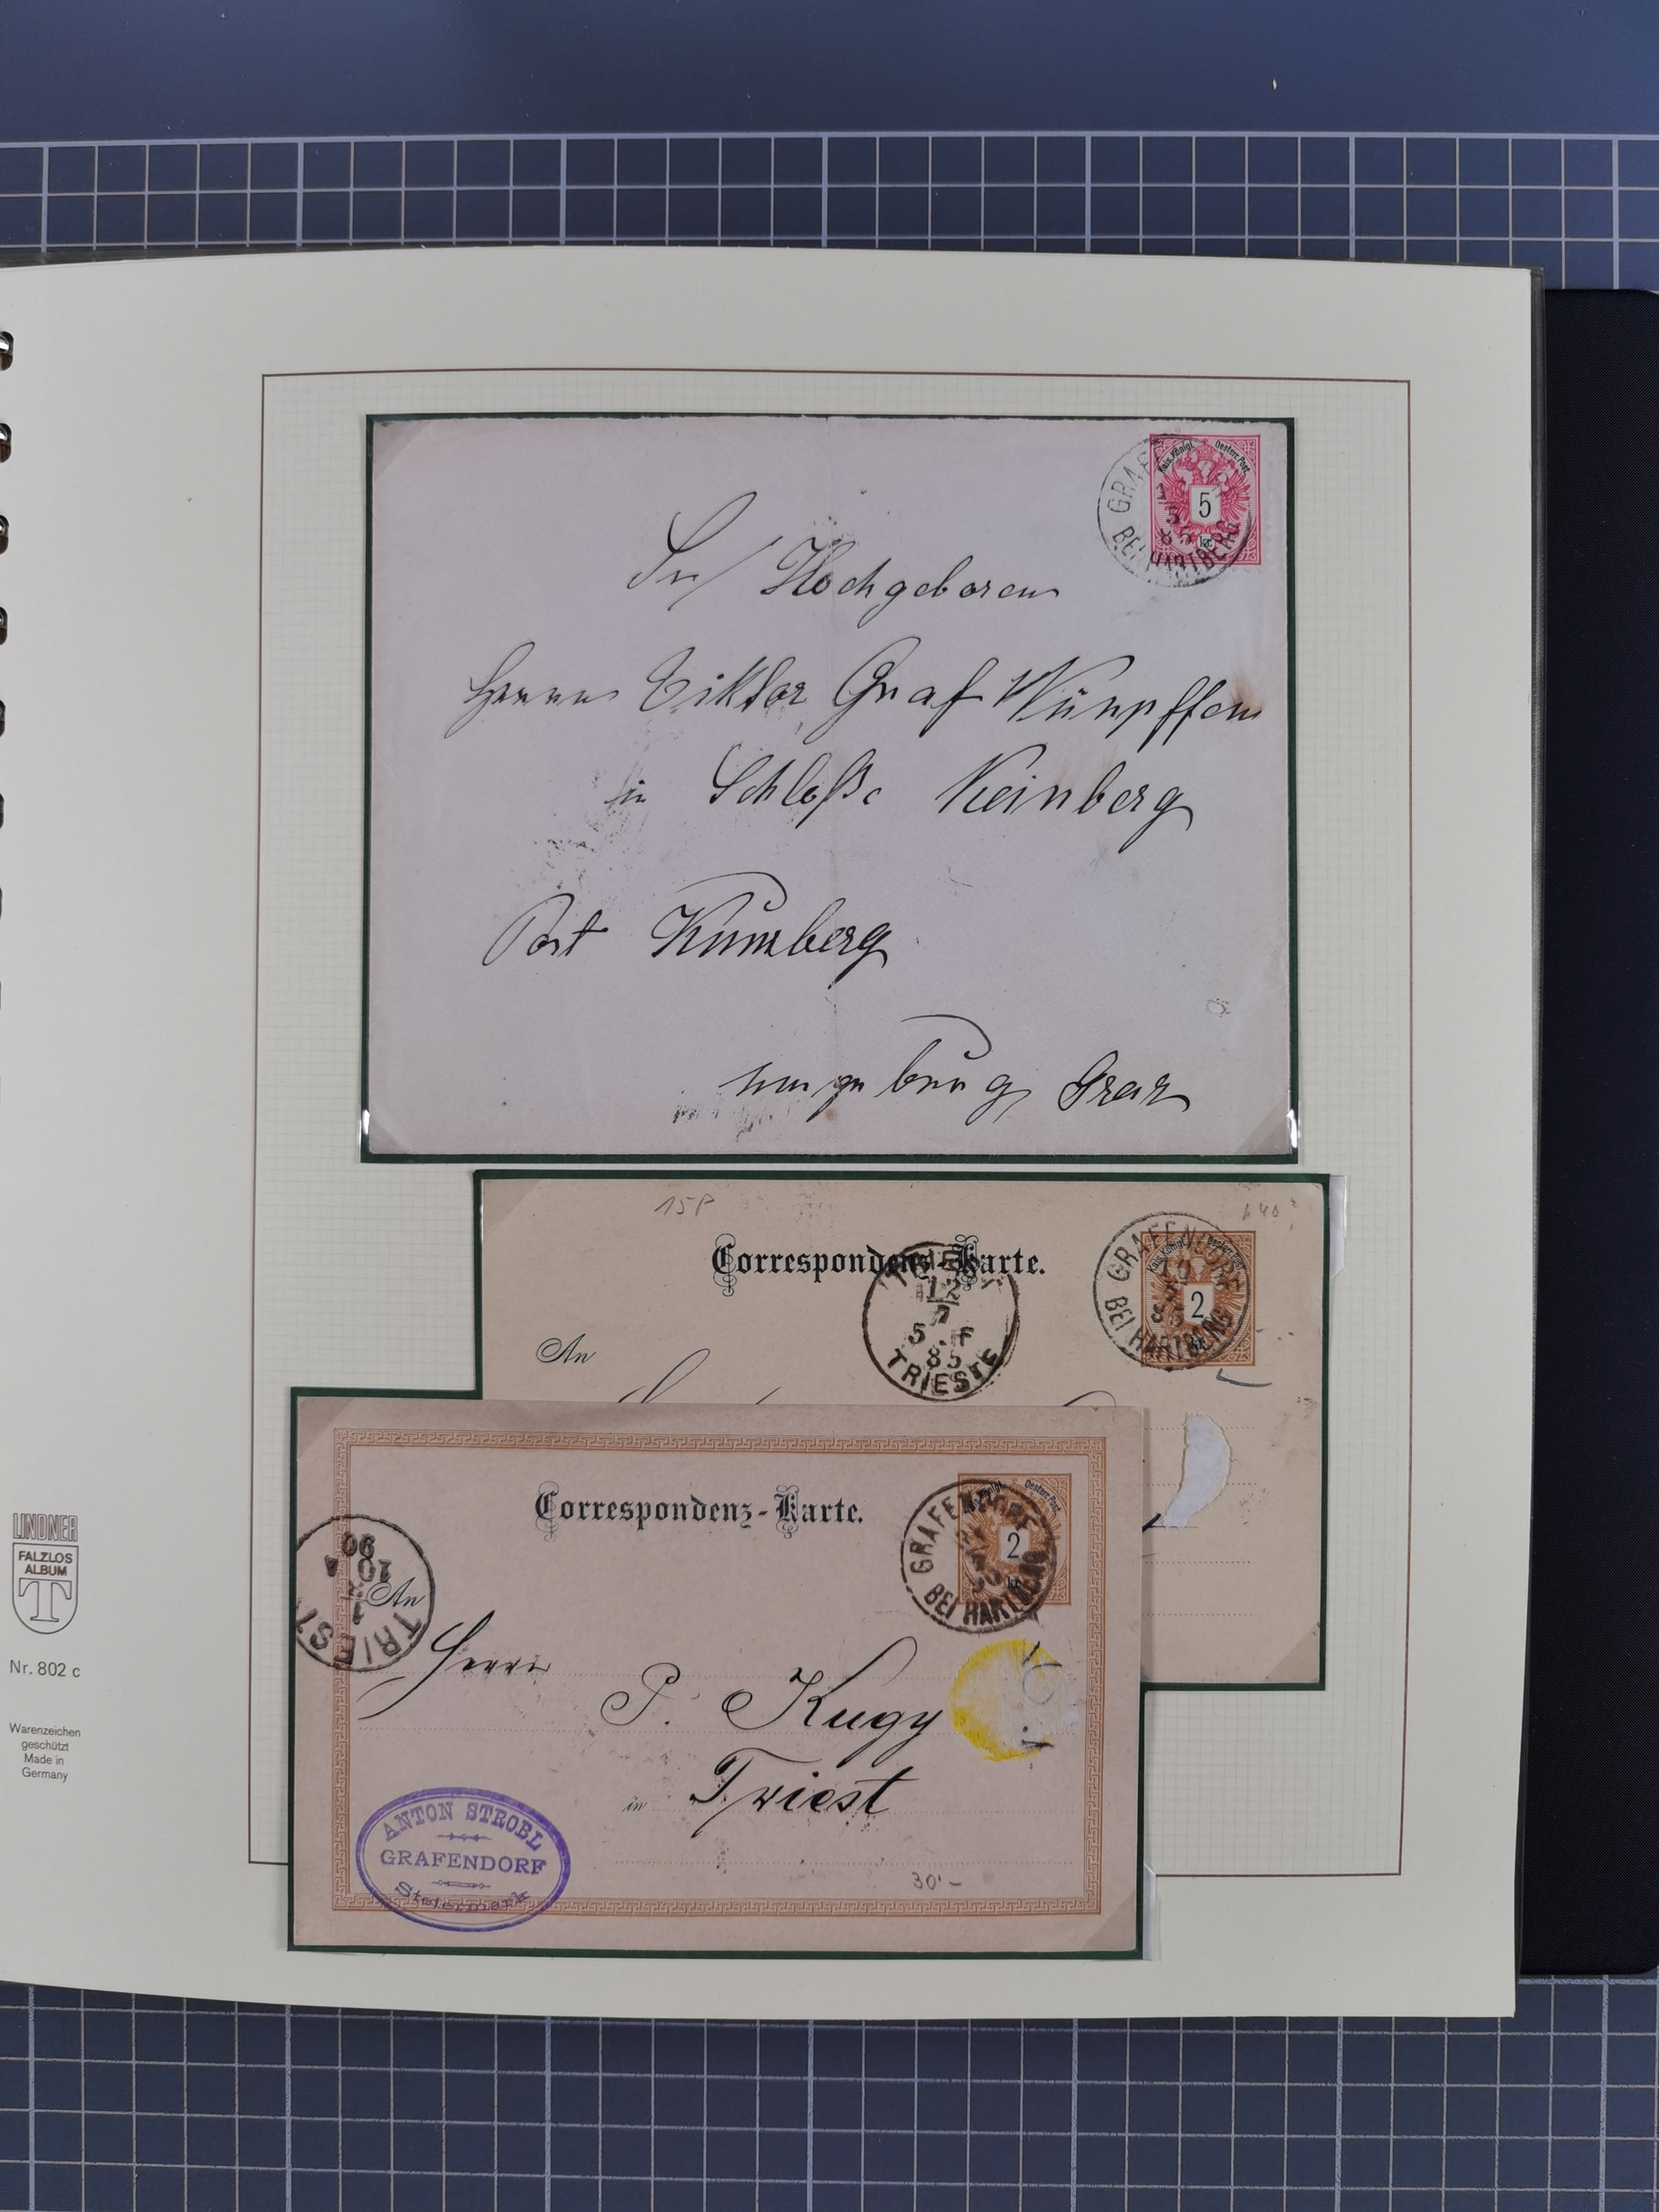 Kais. Königl. Oesterr. Post.
5
kr.
GRAFENDORF
5
85
BEI HARTBERG
Sr/ Hochgeboren
Herrn Viktor Graf Wümpffen
in Schloße Reinberg
Post
umgebung Graz
15P
Correspondenz-Karte.
Kais. Königl. Oesterr. Post.
2
kr.
GRAFENDORF
10
7
85
BEI HARTBERG
TRIEST
12
7
5.F
85
TRIESTE
An
Correspondenz-Karte.
Kais. Königl. Oesterr. Post.
2
kr.
GRAFENDORF
90
BEI HARTBERG
TRIEST
10
90
An
Herrn
P. Kugy
in Triest
ANTON STROBL
GRAFENDORF
Steiermark
30'-
LINDNER
FALZLOS
ALBUM
T
Nr. 802 c
Warenzeichen
geschützt
Made in
Germany